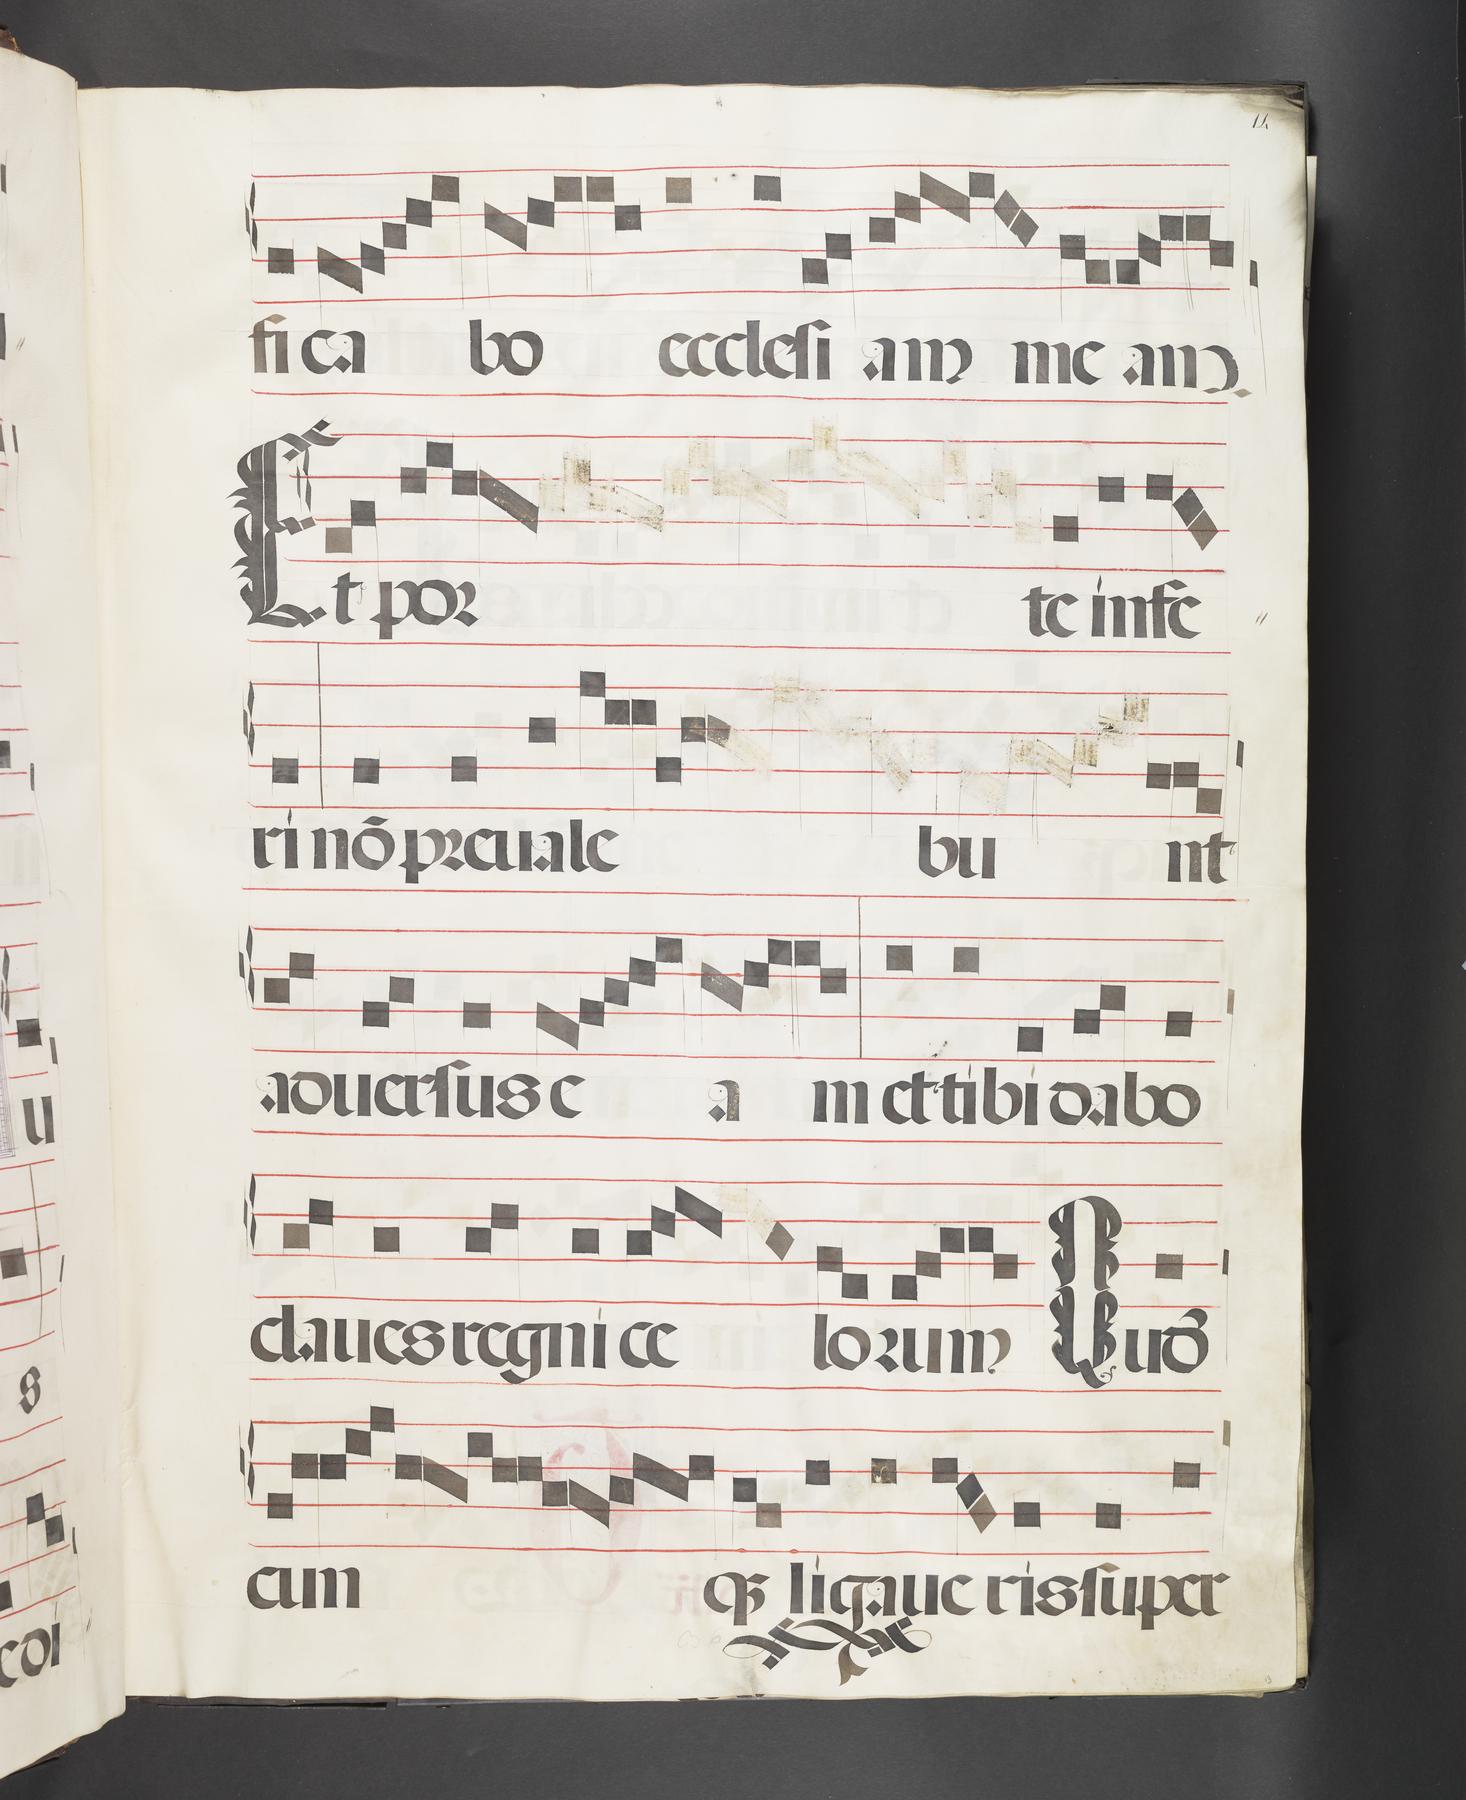 fi ca bo ecclesi am me am
Et por te infe
ri nõ preuale bu nt
aduersus e a m et tibi dabo
claues regni ce lorum Quõ
cum qȝ ligaue ris super